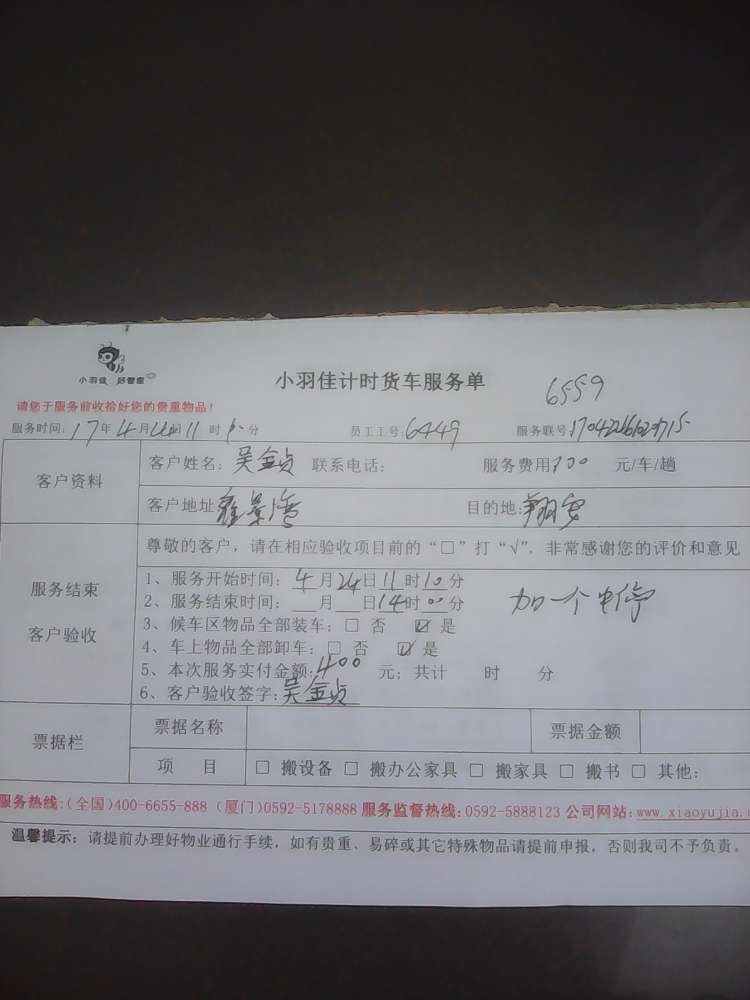 小羽佳 好管家
小羽佳计时货车服务单
6559
请您于服务前收拾好您的贵重物品!
服务时间: 17年4月24日11时 分 员工工号: 6449 服务联号:
客户资料
客户姓名: 吴金贞 联系电话: 服务费用 元/车/趟
客户地址 雍景湾 目的地: 翔安
服务结束
客户验收
尊敬的客户, 请在相应验收项目前的“□”打“√”, 非常感谢您的评价和意见
1、服务开始时间: 4月24日11时10分
2、服务结束时间: 月 日14时00分
加一个
3、候车区物品全部装车: □ 否 ☑ 是
4、车上物品全部卸车: □ 否 ☑ 是
5、本次服务实付金额: 400 元; 共计 时 分
6、客户验收签字: 吴金贞
票据栏
票据名称 票据金额
项 目 □ 搬设备 □ 搬办公家具 □ 搬家具 □ 搬书 □ 其他:
服务热线:(全国)400-6655-888 (厦门)0592-5178888 服务监督热线: 0592-5888123 公司网站: www.xiaoyujia.
温馨提示: 请提前办理好物业通行手续, 如有贵重、易碎或其它特殊物品请提前申报, 否则我司不予负责。